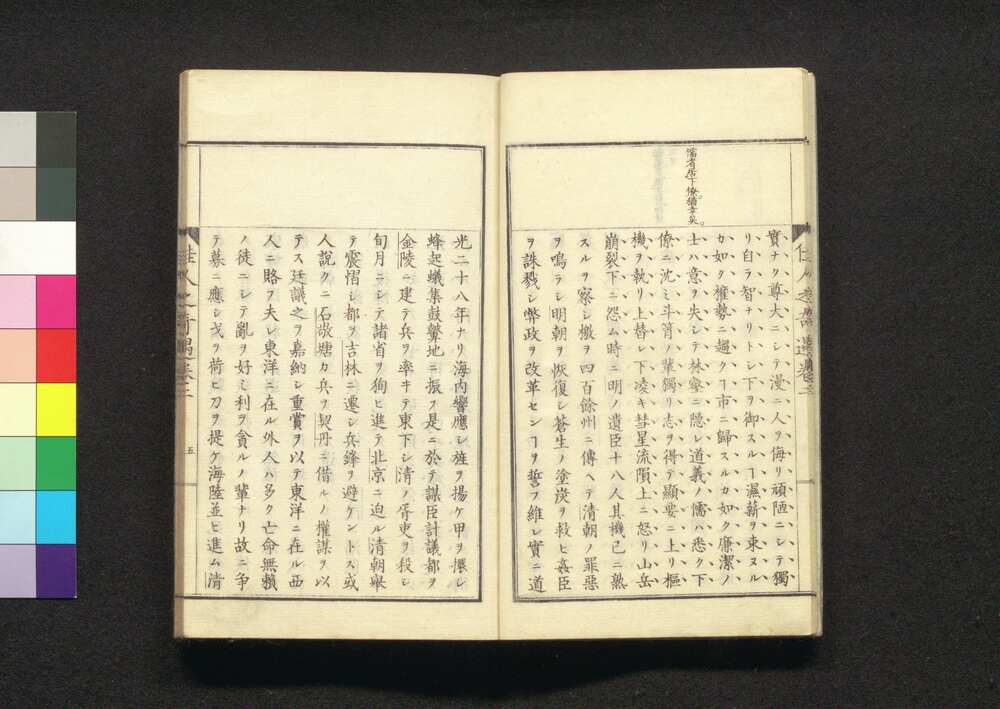 儒者居下僚猶幸矣。
實ナク尊大ニシテ漫ニ人ヲ侮リ頑陋ニシテ獨
リ自ラ智ナリトシ下ヲ御スルヿ濕薪ヲ束ヌル
カ如ク權勢ニ趨クヿ市ニ歸スルカ如ク廉潔ノ
士ハ意ヲ失シテ林壑ニ隱レ道義ノ儒ハ悉ク下
僚ニ沈ミ斗筲ノ輩獨リ志ヲ得テ顯要ニ上リ樞
機ヲ執リ上替シ下凌キ彗星流隕上ニ怒リ山岳
崩裂下ニ怨ム時ニ明ノ遺臣十八人其機已ニ熟
スルヲ察シ檄ヲ四百餘州ニ傳ヘテ清朝ノ罪惡
ヲ鳴ラシ明朝ヲ恢復シ蒼生ノ塗炭ヲ救ヒ姦臣
ヲ誅戮シ弊政ヲ改革センヿヲ誓フ維レ實ニ道
佳人之奇遇卷二
光二十八年ナリ海内響應シ旌ヲ揚ケ甲ヲ擐シ
蜂起蟻集鼓鼙地ニ振フ是ニ於テ謀臣計議都ヲ
金陵ニ建テ兵ヲ率キテ東下シ清ノ胥吏ヲ殺シ
旬月ニシテ諸省ヲ狥ヒ進テ北京ニ迫ル清朝擧
テ震慴シ都ヲ吉林ニ遷シ兵鋒ヲ避ケントス或
人說クニ石敬瑭カ兵ヲ契丹ニ借ルノ權謀ヲ以
テス廷議之ヲ嘉納シ重賞ヲ以テ東洋ニ在ル西
人ニ賂フ夫レ東洋ニ在ル外人ハ多ク亡命無賴
ノ徒ニシテ亂ヲ好ミ利ヲ貪ルノ輩ナリ故ニ爭
テ募ニ應シ戈ヲ荷ヒ刀ヲ提ケ海陸並ヒ進ム清
佳人之奇遇卷二
五